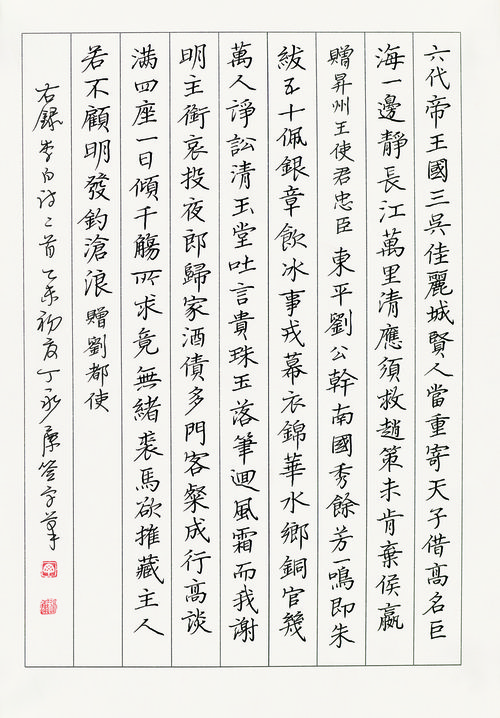 六代帝王國三吳佳麗城賢人當重寄天子借高名巨
海一邊靜長江萬里清應須救趙策未肯棄侯嬴
贈昇州王使君忠臣 東平劉公幹南國秀餘芳一鳴即朱
紱五十佩銀章飲冰事戎幕衣錦華水鄉銅官幾
萬人諍訟清玉堂吐言貴珠玉落筆迴風霜而我謝
明主銜哀投夜郎歸家酒債多門客粲成行高談
滿四座一日傾千觴所求竟無緒裘馬欲摧藏主人
若不顧明發釣滄浪 贈劉都使
右錄李白詩二首乙未初夏丁永康簽字筆